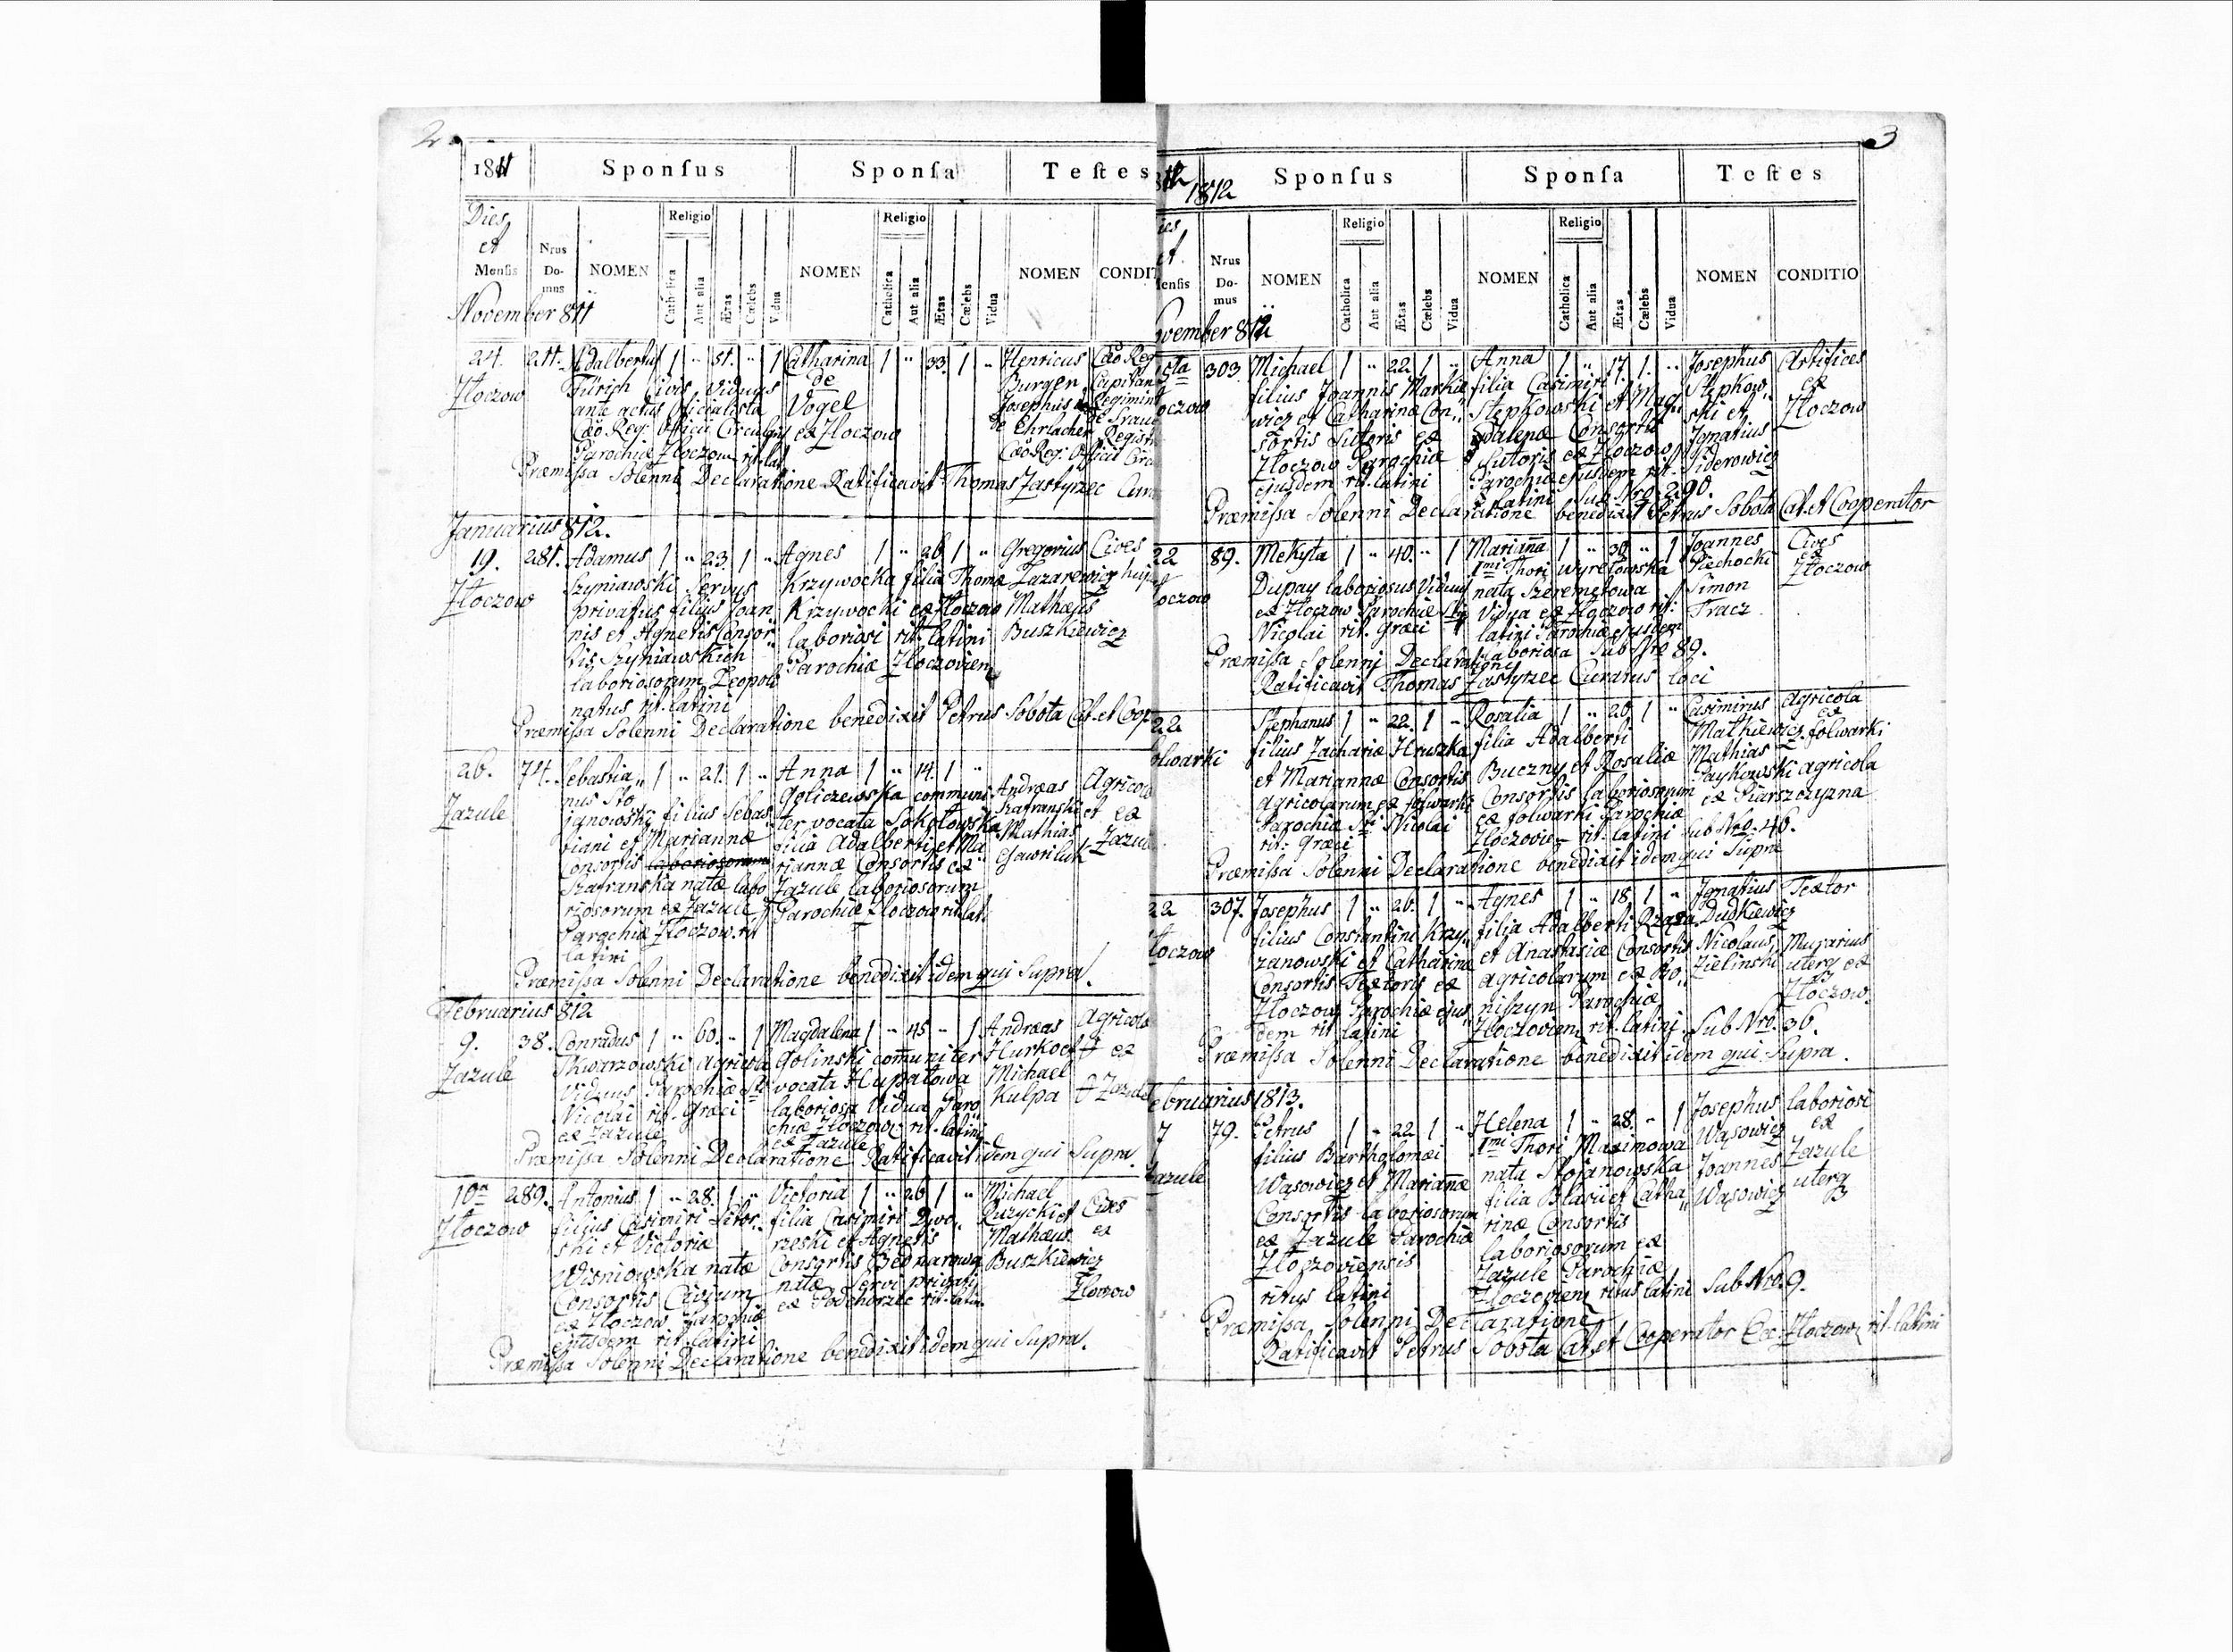 2
1811 Sponsus Sponsa Testes
Dies et Mensis Nrus Domus NOMEN Religio Catholica Aut alia Ætas Cælebs Vidua NOMEN Religio Catholica Aut alia Ætas Cælebs Vidua NOMEN CONDIT
November 811
24. 211. Adalbertus 1 " 51. " 1 Catharina 1 " 33. 1 " Henricus Cæo Reg
Złoczow Türich Civis Viduus de Burger Capitan
ante actus Officialista Vogel Josephus Regimint
Cæo Reg: Officii Circularis ex Złoczow de Ehrlacher Registr
Parochiæ Złoczow rit. lat. Cæo Reg: Officii Circ
Præmissa Solenni Declaratione Ratificavit Thomas Zastyrzec Cur
Januarius 812.
19. 281. Adamus 1 " 23. 1 " Agnes 1 " 26. 1 " Gregorius Cives
Złoczow Szyniawski Servus Krzywocka filia Thomæ Lazarewicz
privatus filius Joan Krzywocki ex Złoczow Mathæus
nis et Agnetis Consor" laboriosi rit. latini Buszkiewicz
tis Szyniawskich Parochiæ Złoczovien
laboriosorum Leopoli
natus rit. latini
Præmissa Solenni Declaratione benedixit Petrus Sobota Cat. et Coop
26. 74. Sebastia" 1 " 21. 1 " Anna 1 " 14. 1 "
Zazule nus Sto Goliczewska communi Andræas Agricol
janowski filius Sebas" ter vocata Sokołowska Szafranski et ex
tiani et Mariannæ filia Adalberti et Ma Mathias Zazul
Consortis laboriosorum riannæ Consortis ex Gawriluk
Szafranska natæ labo Zazule laboriosorum
riosorum ex Zazule Parochiæ Złoczow rit. lat.
Parochiæ Złoczow. rit
latini
Præmissa Solenni Declaratione benedixit idem qui Supra.
Februarius 812
9. 38. Conradus 1 " 60. " 1 Magdalena 1 " 45 " 1 Andræas Agricola
Zazule Skwarzowski Agricola Golinski comuniter Hurko et ex
Viduus Parochiæ Sti vocata Hupałowa Michael Zazule
Nicolai rit. Græci laboriosa Vidua Paro Kulpa
ex Zazule chiæ Złoczow rit. latini
ex Zazule
Præmissa Solenni Declaratione Ratificavit idem qui Supra.
10a 289. Antonius 1 " 28. 1 " Victoria 1 " 26 1 " Michael
Złoczow filius Casimiri filia Casimiri Dwo" Ruzycki et Cives
ski et Victoriæ rzeski et Agnetis Mathæus ex
Wisniowska natæ Consortis Bednarowa Buszkiewicz
Consortis Civium natæ Servi privati Złoczow
ex Złoczow Parochiæ ex Podhorzec rit. latin
ejusdem rit. latini
Præmissa Solenni Declaratione benedixit idem qui Supra.
3
1812 Sponsus Sponsa Testes
Nrus Domus NOMEN Religio Catholica Aut alia Ætas Cælebs Vidua NOMEN Religio Catholica Aut alia Ætas Cælebs Vidua NOMEN CONDITIO
ovember 812
303. Michael 1 " 22. 1 " Anna 1 " 17. 1. " Josephus Artifices
oczow filius Joannis Markie filia Casimiri Stepkow" ex
wicz et Catharinæ Con" Stepkowski et Mag" ski et Złoczow
sortis Sutoris ex dalenæ Consortis Ignatius
Złoczow Parochiæ Sutoris ex Złoczow Siderowicz
ejusdem rit. latini Parochiæ ejusdem rit.
latini Sub Nro. 290.
Præmissa Solenni Declaratione benedixit Petrus Sobota Cat. et Cooperator
22 89. Mekyta 1 " 40. " 1 Marianna 1 " 30. " 1 Joannes Cives
oczow Dupay laboriosus Viduus 1mi Thori Wyretowska Piechocki ex
ex Złoczow Parochiæ Sti nata Szeremetowa Simon Złoczow
Nicolai rit. Græci Vidua ex Złoczow rit: Tracz
latini Parochiæ ejusdem
laboriosa Sub Nro 89.
Præmissa Solenni Declaratione
Ratificavit Thomas Zastyrzec Curatus loci
22 Stephanus 1 " 22. 1 " Rosalia 1 " 20. 1 " Casimirus Agricola
olwarki filius Zachariæ Hruszka filia Adalberti Mathiewicz ex folwarki
et Mariannæ Consortis Buczny et Rosaliæ Mathias
agricolarum ex folwarki Consortis laboriosorum Paykowski agricola
Parochiæ Sti Nicolai ex folwarki Parochiæ ex Piarszczyzna
rit: Græci Złoczovien rit. latini Sub Nro. 46.
Præmissa Solenni Declaratione benedixit idem qui Supra
22 307. Josephus 1 " 26. 1 " Agnes 1 " 18. 1 " Ignatius Textor
łoczow filius Constantini Krzy" filia Adalberti Rzaza Dudkiewicz
zanowski et Catharinæ et Anastasiæ Consortis Nicolaus Murarius
Consortis Textoris ex agricolarum ex Bo" Zielinski uterq ex
Złoczow Parochiæ ejus" niszyn Parochiæ Złoczow.
dem rit. latini Złoczovien rit. latini. Sub Nro. 36.
Præmissa Solenni Declaratione benedixit idem qui Supra.
ebruarius 1813.
7 79. Petrus 1 " 22. 1 " Helena 1 " 28. " 1 Josephus laboriosi
Zazule filius Bartholomæi 1mi Thori Maximowa Wąsowicz ex
Wąsowicz et Mariannæ nata Stojanowska Joannes Zazule
Consortis laboriosorum filia Blasii et Catha" Wąsowicz uterq
ex Zazule Parochiæ rinæ Consortis
Złoczoviensis laboriosorum ex
ritus latini Zazule Parochiæ
Złoczovien ritus latini Sub Nro. 9.
Præmissa Solenni Declaratione
Ratificavit Petrus Sobota Cat. et Cooperator Ecc: Złoczow rit. latini